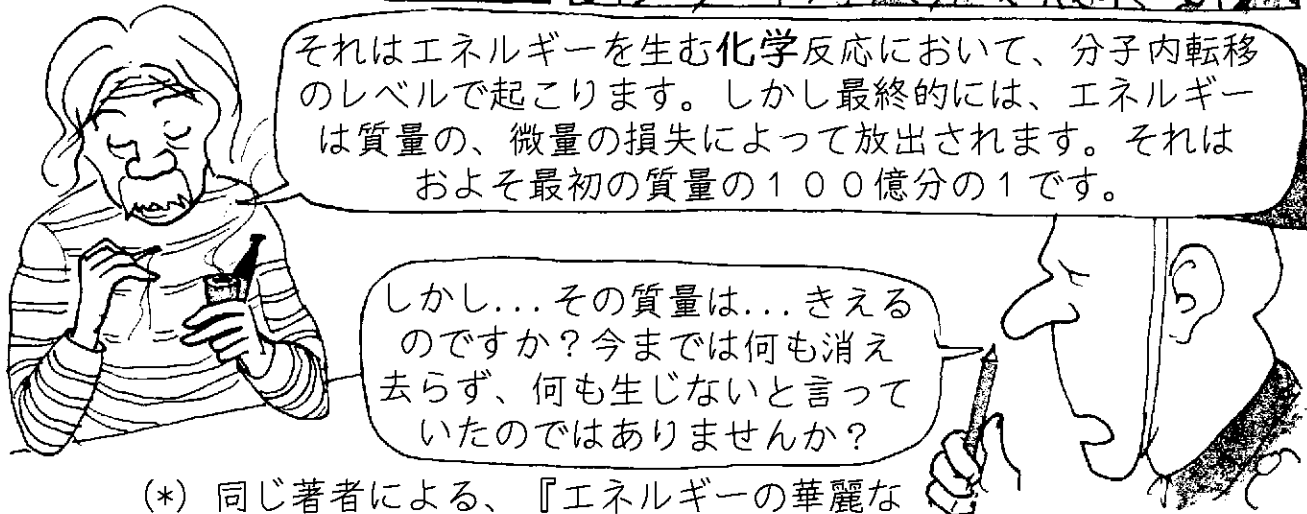 それはエネルギーを生む化学反応において、分子内転移
のレベルで起こります。しかし最終的には、エネルギー
は質量の、微量の損失によって放出されます。それは
およそ最初の質量の１００億分の１です。
しかし...その質量は...きえる
のですか？今までは何も消え
去らず、何も生じないと言って
いたのではありませんか？
(*) 同じ著者による、『エネルギーの華麗な